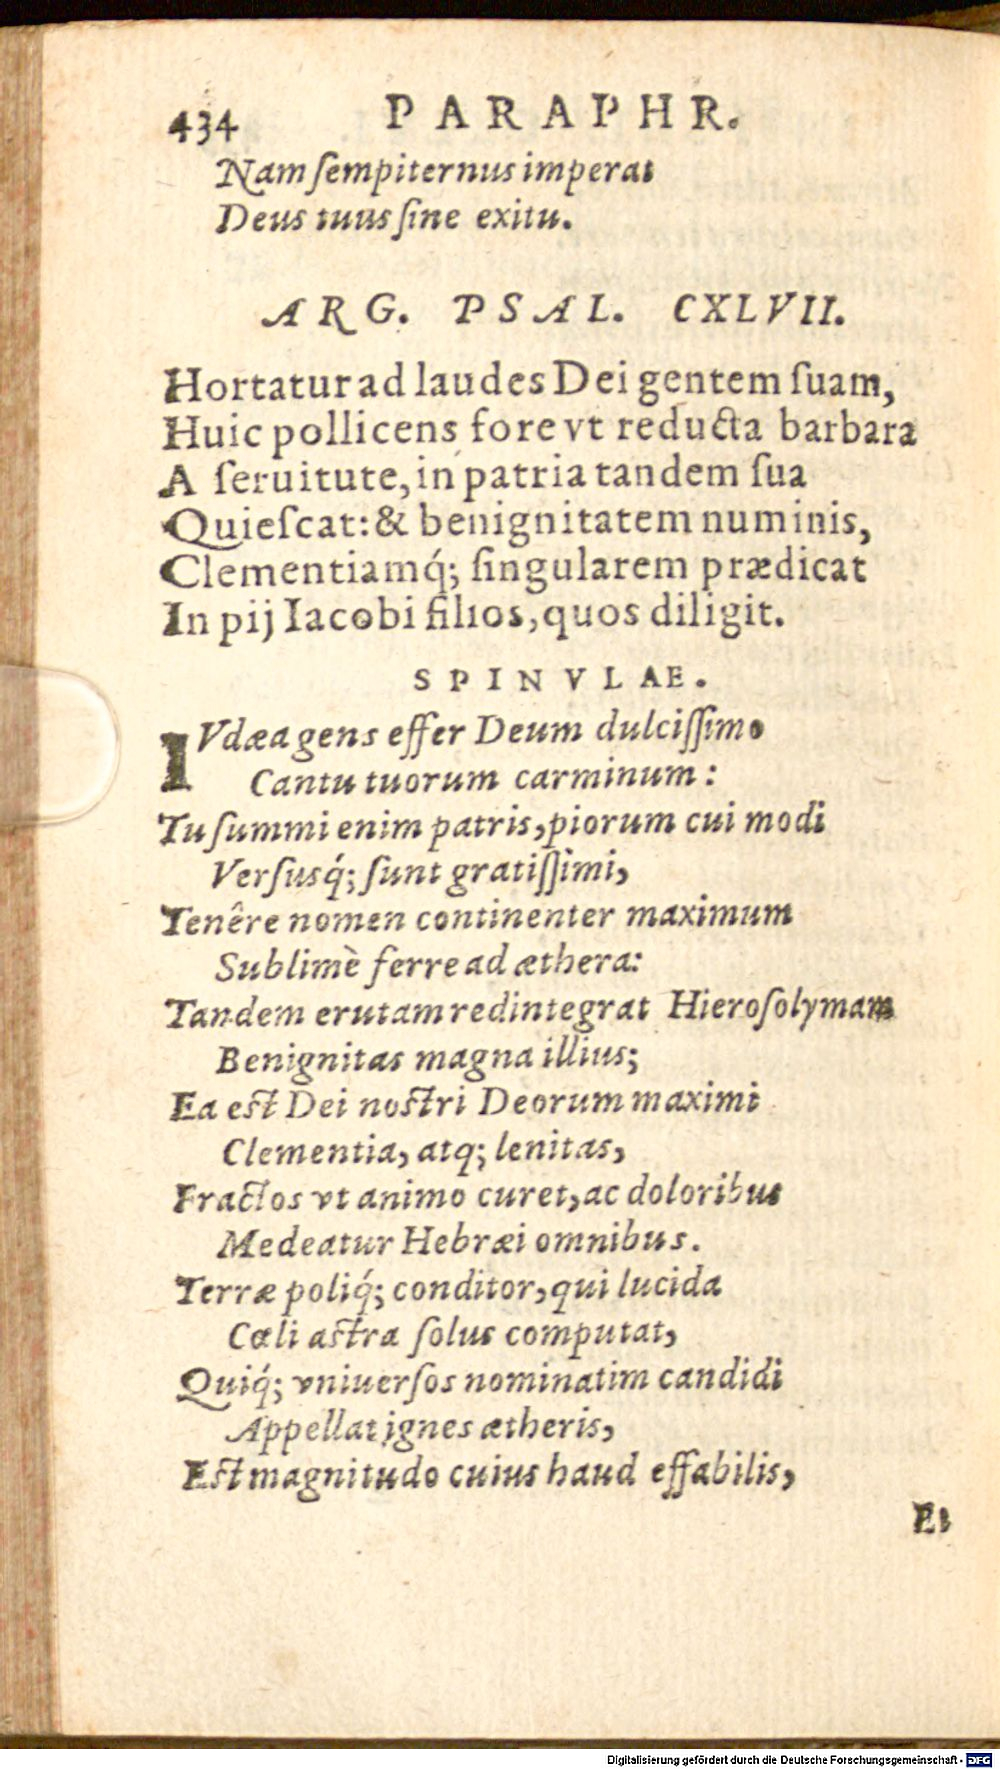 434 PARAPHR.
Nam ſempiternus imperat
Deus tuus ſine exitu.
ARG. PSAL. CXLVII.
Hortatur ad laudes Dei gentem ſuam,
Huic pollicens fore vt reducta barbara
A ſeruitute, in patria tandem ſua
Quieſcat: & benignitatem numinis,
Clementiamq́; ſingularem prædicat
In pij Iacobi filios, quos diligit.
SPINVLAE.
IVdæa gens effer Deum dulciſſimo
Cantu tuorum carminum:
Tu ſummi enim patris, piorum cui modi
Verſusq́; ſunt gratiſſimi,
Tenêre nomen continenter maximum
Sublimè ferre ad æthera:
Tandem erutam redintegrat Hieroſolymam
Benignitas magna illius;
Ea est Dei nostri Deorum maximi
Clementia, atq; lenitas,
Fractos vt animo curet, ac doloribus
Medeatur Hebræi omnibus.
Terræ poliq́; conditor, qui lucida
Cœli astra ſolus computat,
Quiq́; vniuerſos nominatim candidi
Appellat ignes ætheris,
Est magnitudo cuius haud effabilis,
Et
Digitalisierung gefördert durch die Deutsche Forschungsgemeinschaft - DFG